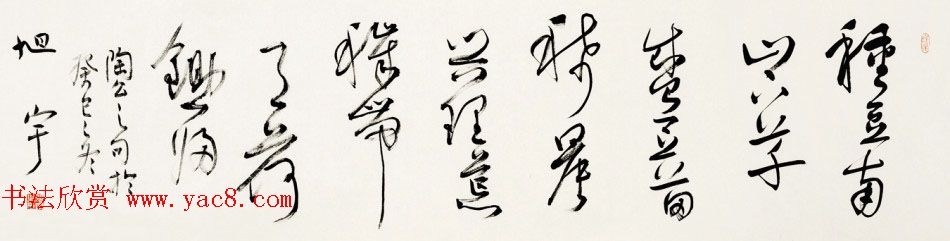 種豆南
山下草
盛豆苗
稀晨
興理荒
穢帶
月荷
鋤歸
陶公之句於
癸巳之冬
旭宇
书法欣赏
www.yac8.com